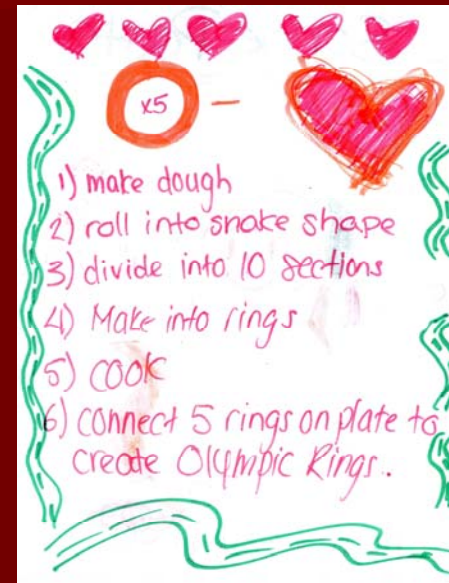 x5
1) make dough
2) roll into snake shape
3) divide into 10 sections
4) Make into rings
5) COOK
6) connect 5 rings on plate to
create Olympic Rings.